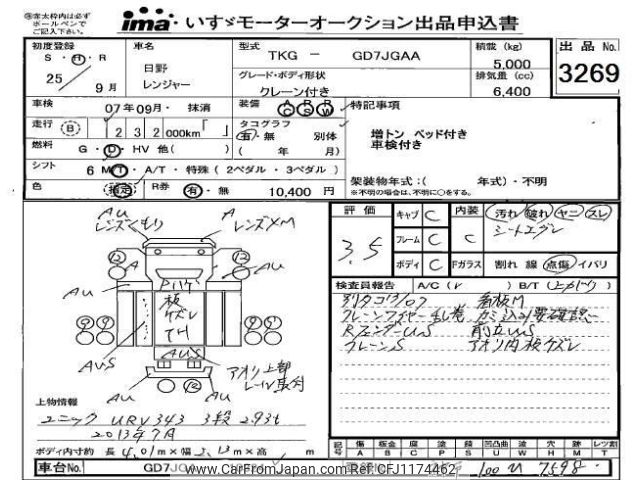 ※赤太枠内は必ず
ボールペンで
ご記入下さい。
ima いすゞモーターオークション出品申込書
初度登録 S・H・R 25 9月
車名 日野 レンジャー
型式 TKG － GD7JGAA
グレード・ボディ形状 クレーン付き
積載 (kg) 5,000
排気量 (cc) 6,400
出品 No. 3269
車検 07年09月・抹消
装備 A C P S R W
特記事項
増トン ベッド付き
車検付き
走行 B 1232000km「 」
タコグラフ 有・無 別体 ( 年 月)
燃料 G・D・HV 他( )
シフト 6 MT・A/T・特殊(2ペダル・3ペダル)
架装物年式:( 年式)・不明
※不明の場合は、不明に○をする。
色 指定
R券 有・無 10,400 円
AU レンズくもり
A レンズXM
12 A
12 AU
AU
板 ケズレ TH
AVS
AU
アオリ上部
レール取付
AU
12
AU
評価 3.5
キャブ C
フレーム C
ボディ C
内装 C
汚れ 破れ ヤニ スレ
シートエグレ
Fガラス 割れ 線 点傷 イバリ
検査員報告 A/C( ) B/T( )
別タコグラフ 看板M
R/フェンダーUS 前立US
クレーンS アオリ内板ケズレ
上物情報
ユニック URV343 3段 2.93t
2013年7月
ボディ内寸約 長 4.01m×幅 2.13m×高 m
記号 傷 A 板金 B 腐 C 塗 P 錆 S 凹凸曲 U 塗 W 穴 H 跡 M レツ割 T
車台No. GD7JGA
www.CarFromJapan.com Ref:CFJ1174462
100 U 7598